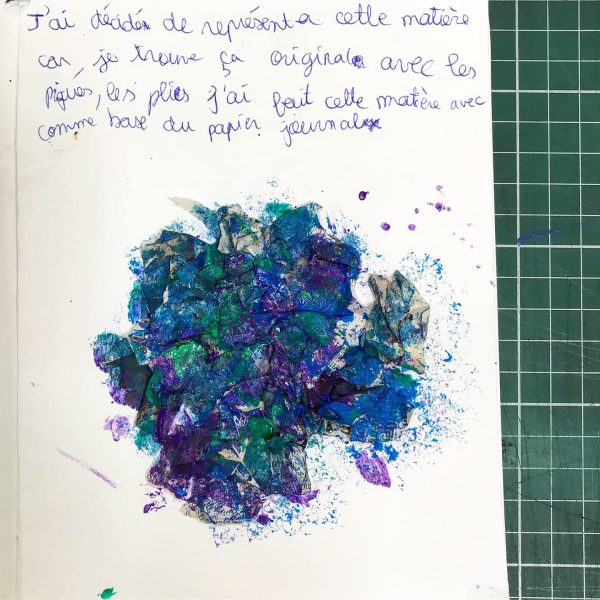 J'ai décidé de représenter cette matière
car, je trouve ça original avec les
piques, les plies j'ai fait cette matère avec
comme base du papier journal